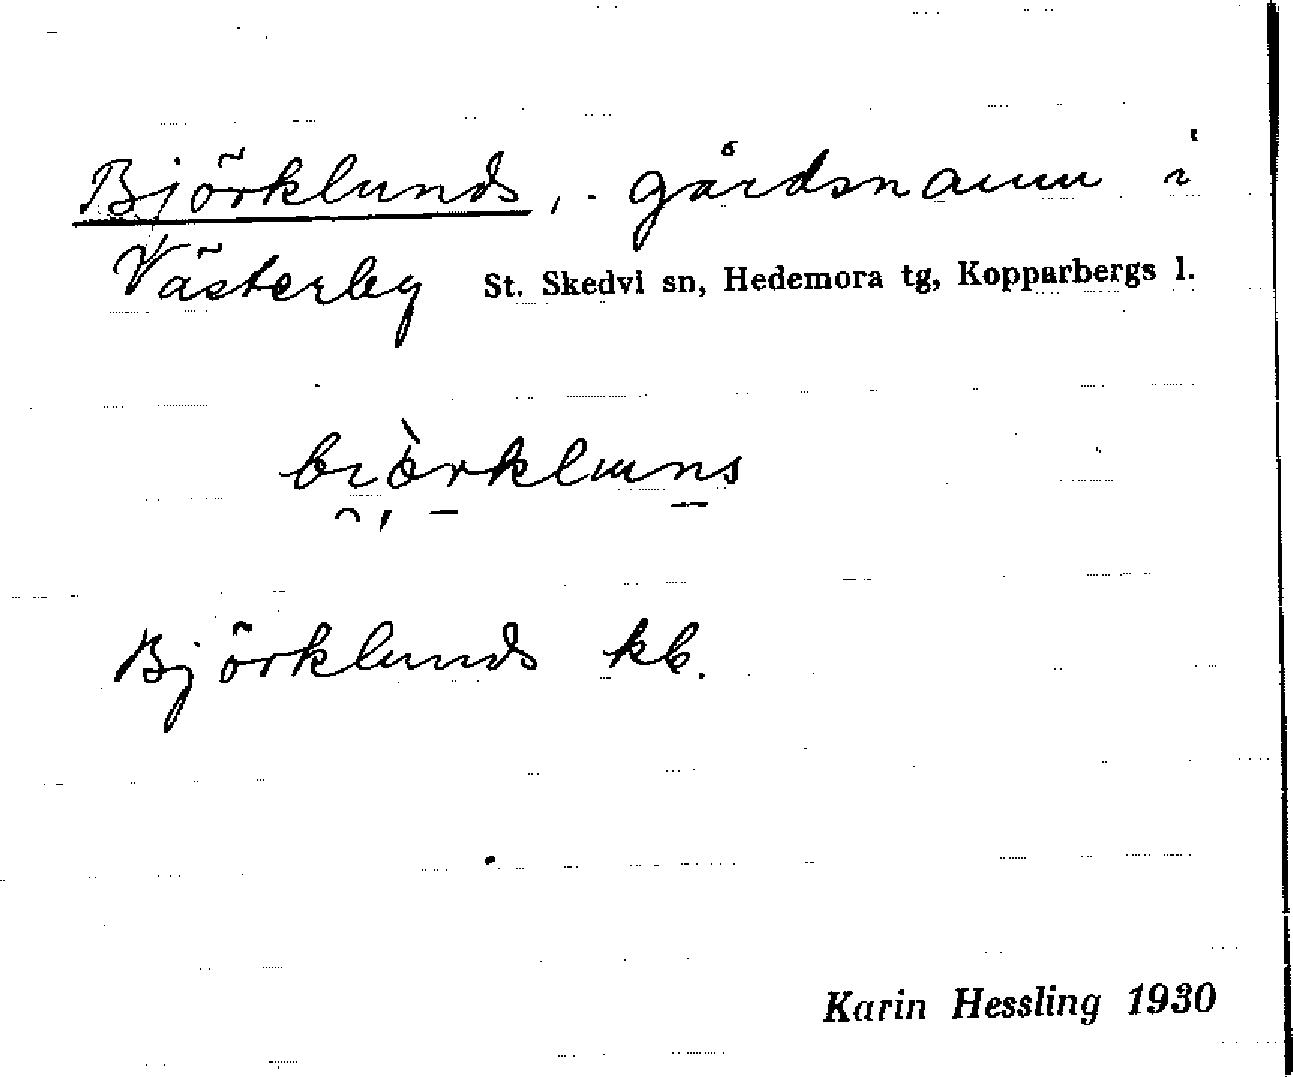 Björklunds, - gårdsnamn i
Västerby St. Skedvi sn, Hedemora tg, Kopparbergs l.
bi̯òrkluns
Björklunds kb.
Karin Hessling 1930